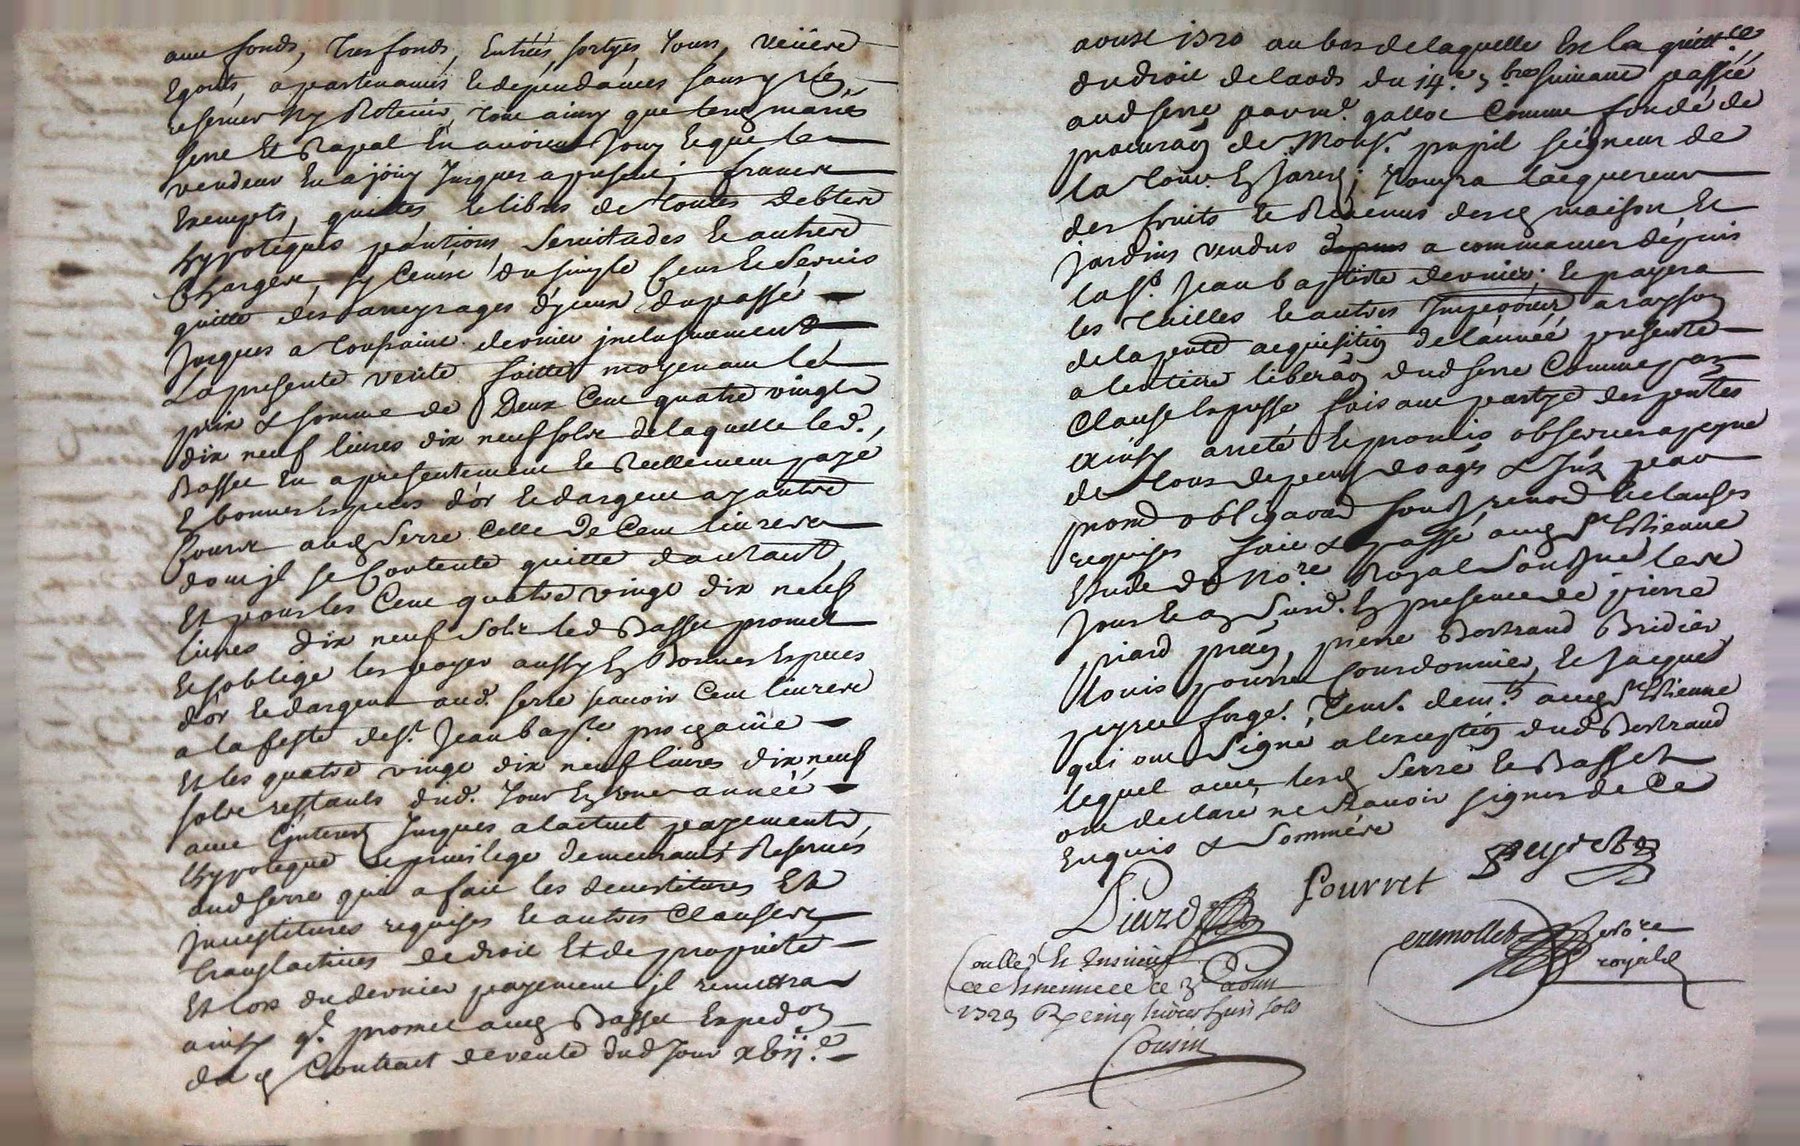 avec fonds, tresfonds, Entrées, sortyes, Jours, veüere
Egouts, apartenances & dependances sans y rien
reserver ny Retenir, tout ainsy que lesd mariés
serre Et Rapal En avoient Jouy & que le
vendeur En a jouy Jusques a present, franxe
Exempts, quittes & libres de toutes debtere
hypoteques pantions servitudes & autrere
Charges, sy Cen'est du simple Cens & servis
quitte des arreyrages d'yceux du passé
Jusques a toussaint dernier jnclusivement
La presente vente faitte moyenant le
prix & somme de Deux Cent quatre vingt
dix neuf livres dix neuf sols de laquelle led.
Basset En a presentement & Reellement payé
En bonnes Especes d'or & dargent ayantre
Cours aud Serre Celle de Cent livrere
dont jl se Contente quitte dautant
Et pour les Cent quatre vingt dix neuf
livres dix neuf sols led Basset promet
& soblige les payer aussy En Bonnes Especes
d'or & dargent aud. serre scavoir Cent livrere
a la feste de St. Jean bapte. prochaine
Et les quatre vingt dix neuf livres dix neuf
sols restants dud. Jour En une année
avec Cjnterest Jusques a lactuel payement
hypoteque & privilege demeurants Reservés
aud serre qui a fait les devestitures Et
jnvestitures requises & autres Clausere
translatives de droit Et de proprieté
Et lors du dernier payement jl remettra
ainsy q'l promet aud Basset Expedon
dud Contrat de vente dud Jour xbij.e
aoust 1720 au bas de laquelle Est la quittce
du droit de laods du 14.e 7.bre suivant passée
aud serre par m.e gallot Comme fondé de
procuraon de Mons.r pupil seigneur de
la tour En Jarest; Jouyra lacquereur
des fruits & Revenus desd maison Et
jardins vendus depuis a commancer depuis
la st. Jean baptiste dernier & payera
les tailles & autres Jmpositions a rayson
de la pnte acquisition de lannée presente
a lentiere liberaon dud serre Comme par
Clause Expresse faisant partye des pntes
ainsy arreté & promis observer a peyne
de tous depens domages & Jnts par
promes obligaons soubms renond & clauses
requises fait & passé aud St Estienne
Etude du nore Royal soubsigné lesd
Jour & an susd. En presence de pierre
piard praen, pierre Bertrand Bridier
louis pourret Courdonnier & Jacques
peyret forger. Temt. demts. aud St Estienne
qui ont signé a lexception dud Bertrand
lequel avec lesd Serre & Basset
ont declaré ne scavoir signer de Ce
Enquis & Sommés
Piard Pourret Peyret
Cremollet nore
royal
Collé & Insinué
a St Etienne ce 3 aoust
1723 R cinq livres huit sols
Cousin